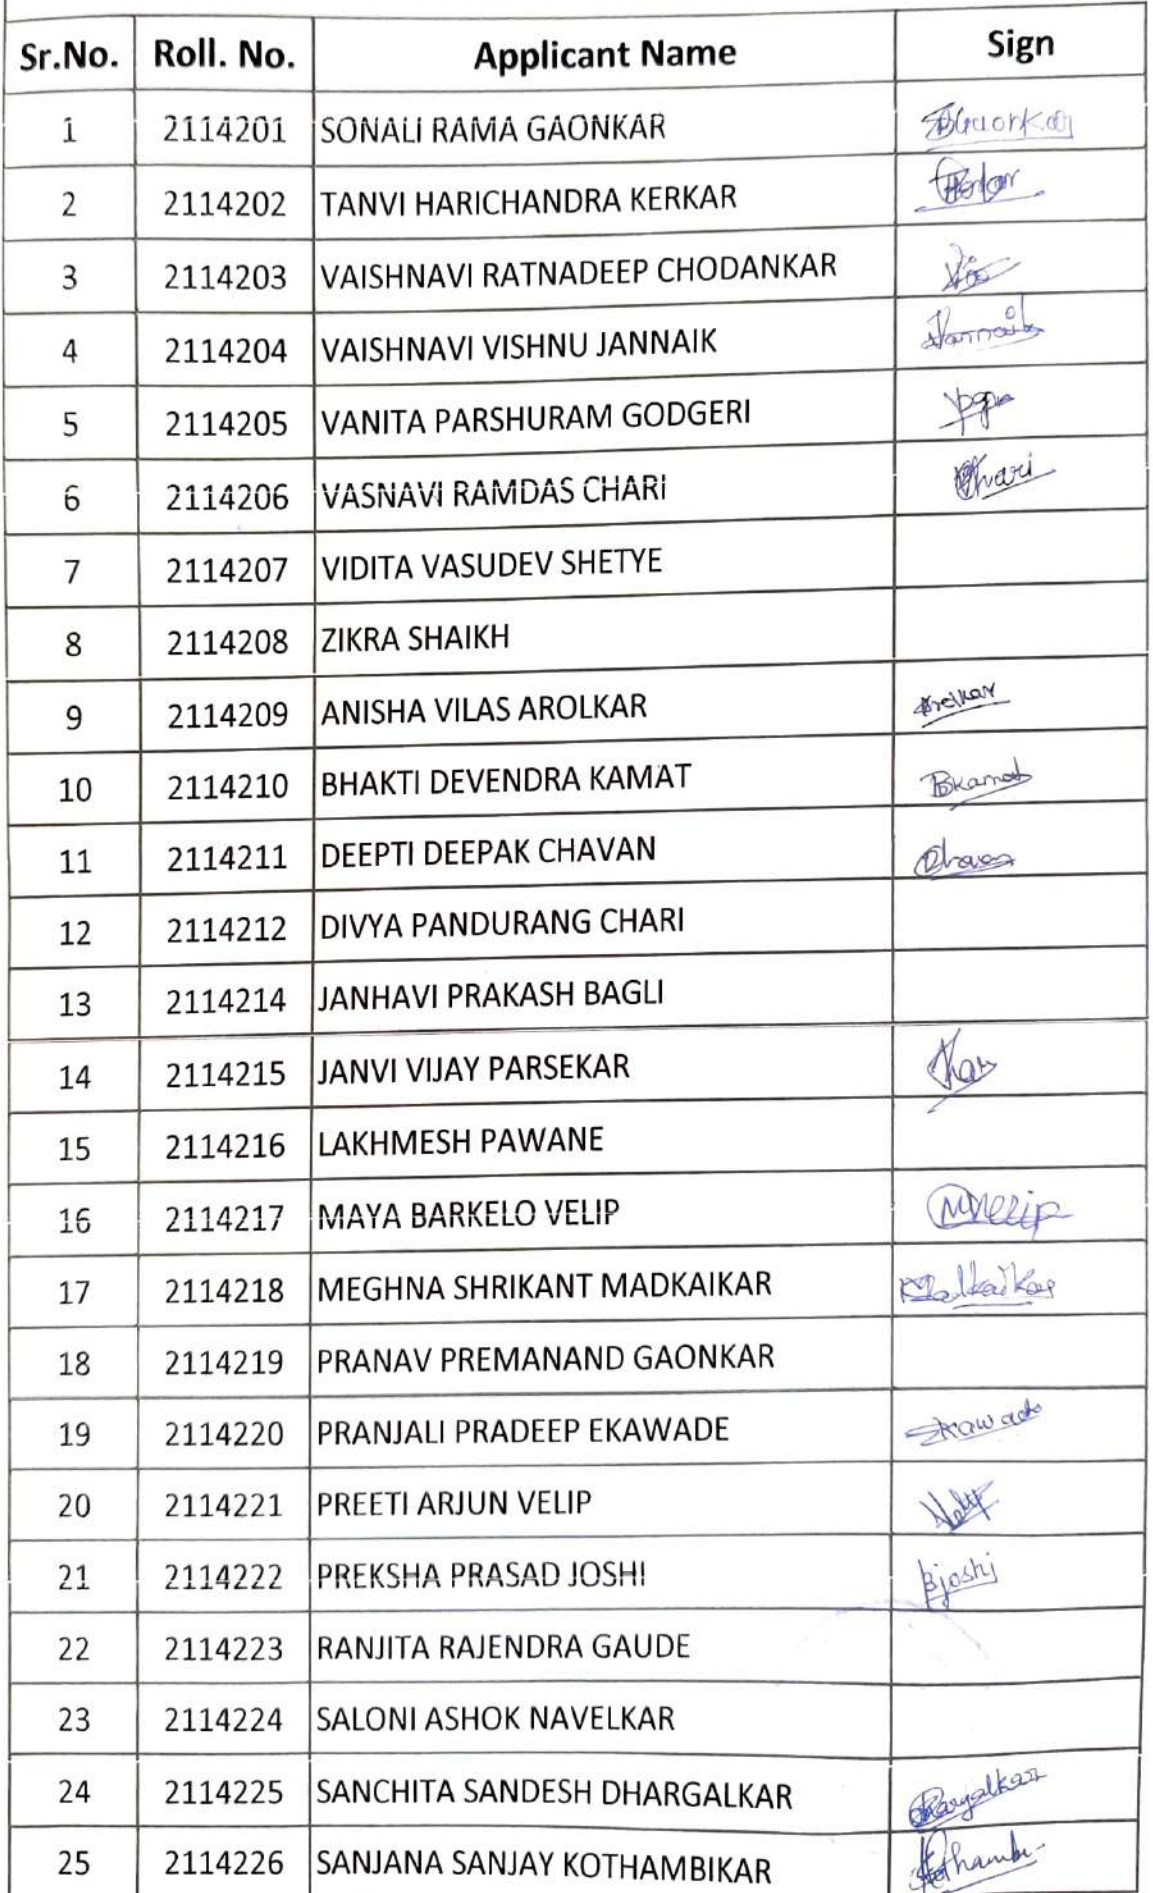 Sr.No. Roll. No. Applicant Name Sign
1 2114201 SONALI RAMA GAONKAR
2 2114202 TANVI HARICHANDRA KERKAR
3 2114203 VAISHNAVI RATNADEEP CHODANKAR
4 2114204 VAISHNAVI VISHNU JANNAIK
5 2114205 VANITA PARSHURAM GODGERI
6 2114206 VASNAVI RAMDAS CHARI Chari
7 2114207 VIDITA VASUDEV SHETYE
8 2114208 ZIKRA SHAIKH
9 2114209 ANISHA VILAS AROLKAR Arolkar
10 2114210 BHAKTI DEVENDRA KAMAT Bkamat
11 2114211 DEEPTI DEEPAK CHAVAN
12 2114212 DIVYA PANDURANG CHARI
13 2114214 JANHAVI PRAKASH BAGLI
14 2114215 JANVI VIJAY PARSEKAR
15 2114216 LAKHMESH PAWANE
16 2114217 MAYA BARKELO VELIP
17 2114218 MEGHNA SHRIKANT MADKAIKAR Madkaikar
18 2114219 PRANAV PREMANAND GAONKAR
19 2114220 PRANJALI PRADEEP EKAWADE
20 2114221 PREETI ARJUN VELIP
21 2114222 PREKSHA PRASAD JOSHI Pjoshi
22 2114223 RANJITA RAJENDRA GAUDE
23 2114224 SALONI ASHOK NAVELKAR
24 2114225 SANCHITA SANDESH DHARGALKAR Dhargalkar
25 2114226 SANJANA SANJAY KOTHAMBIKAR